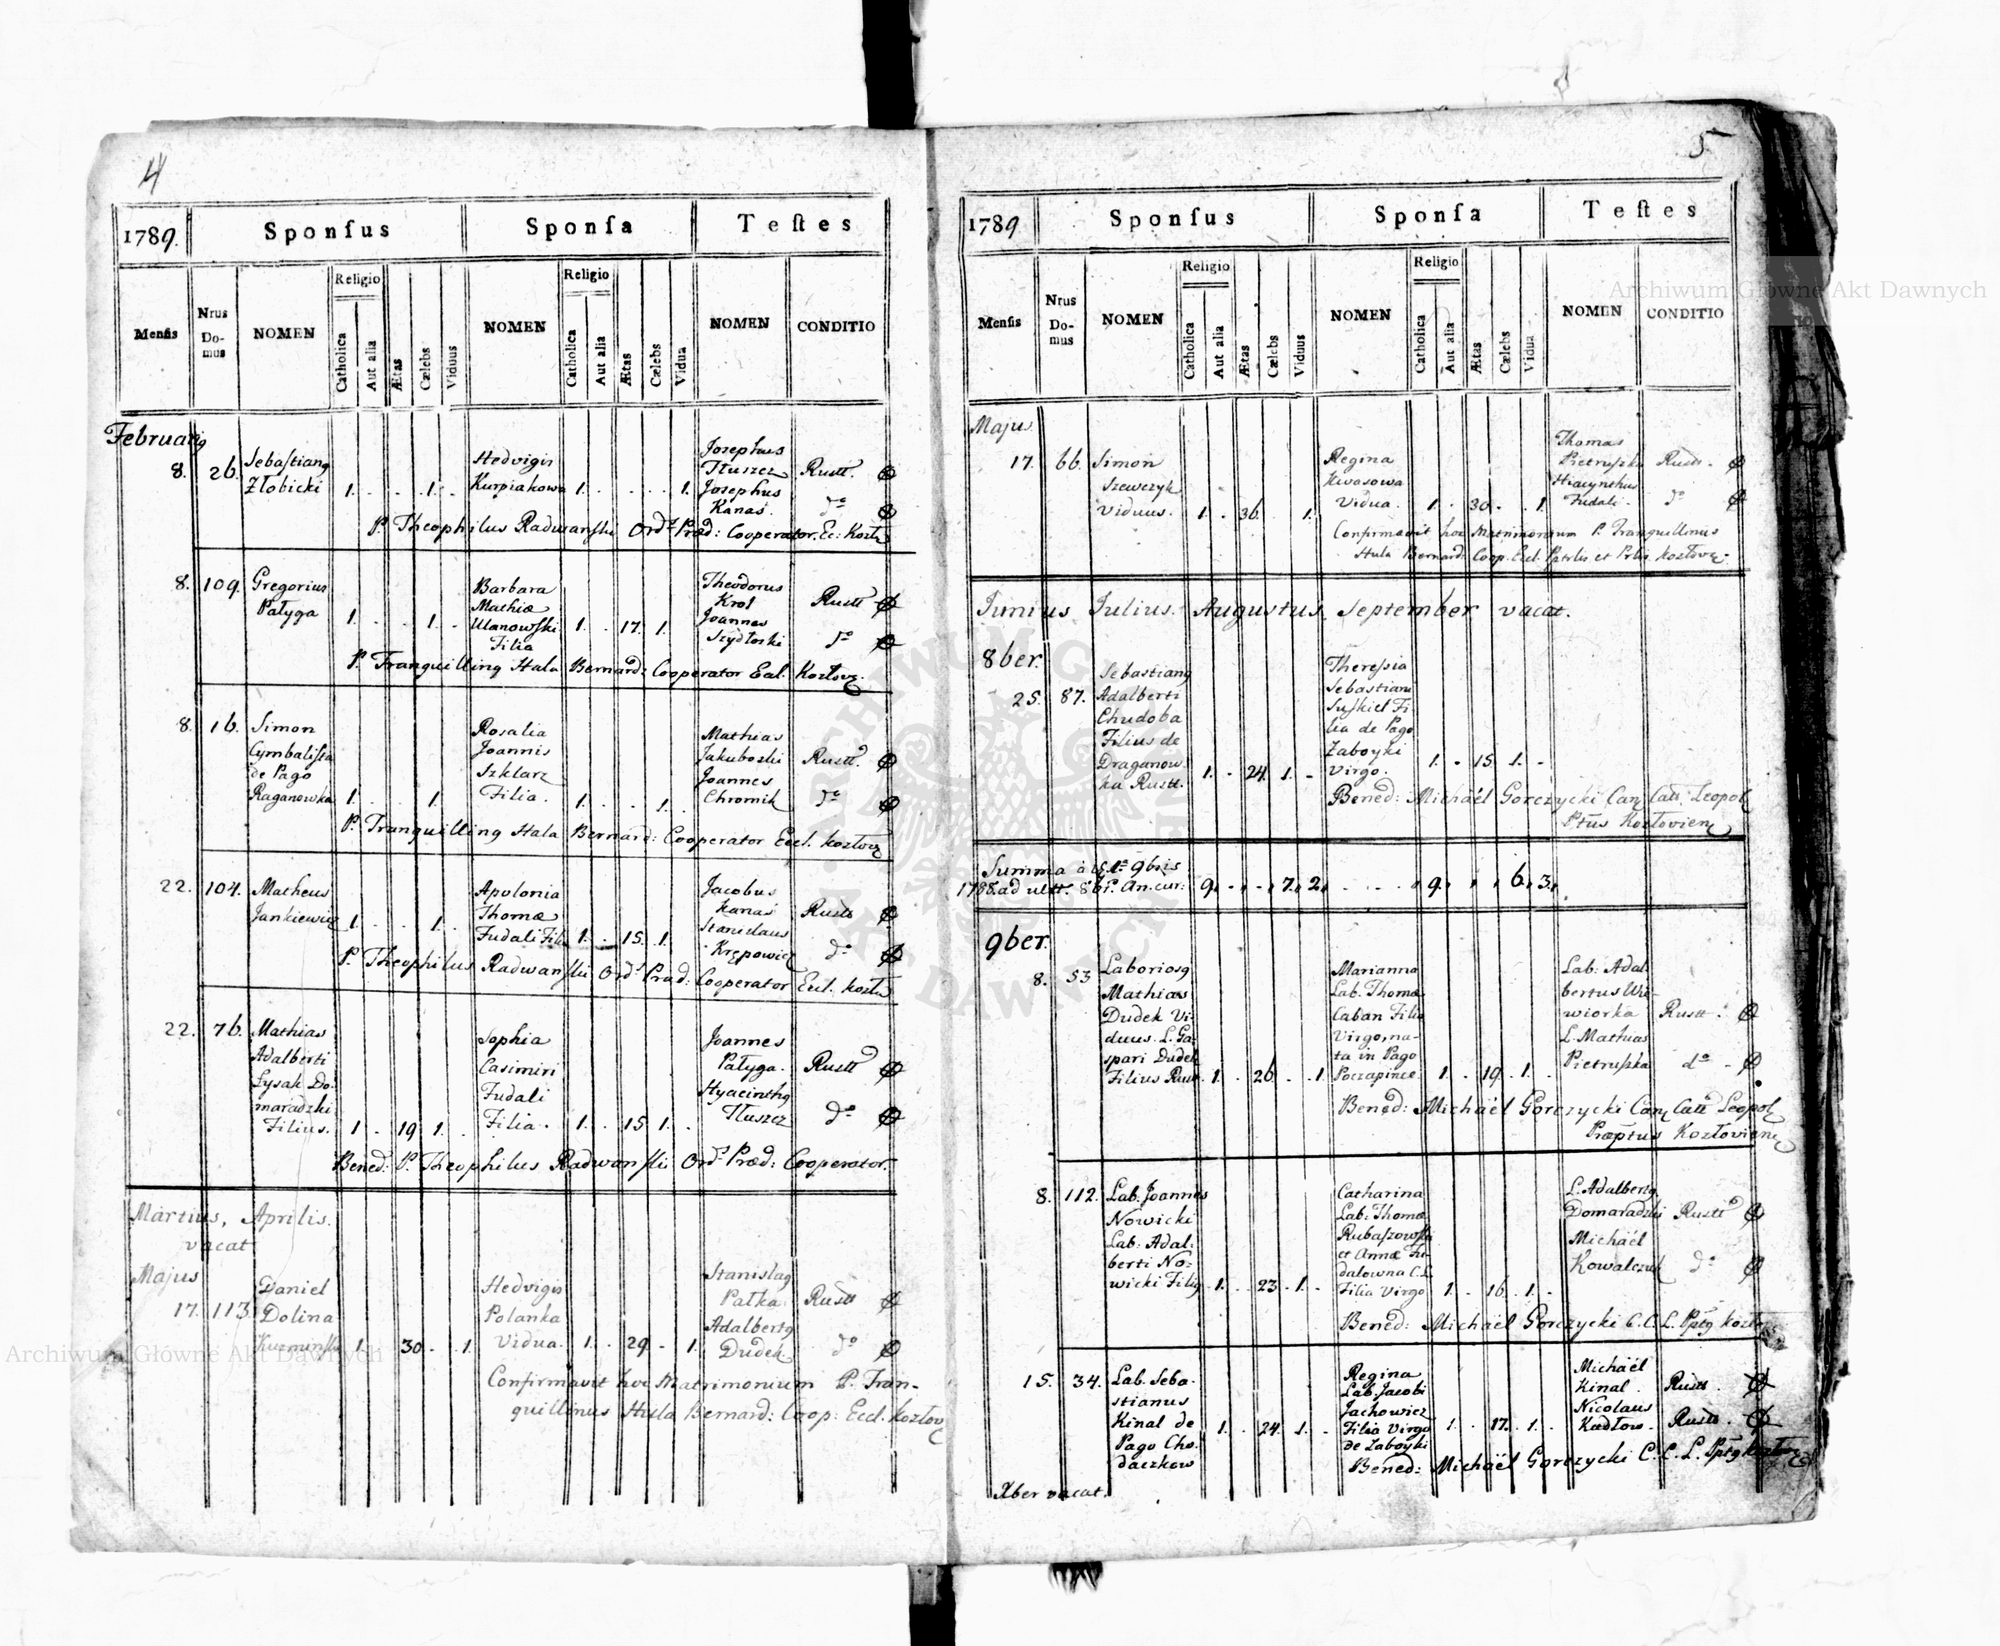 4
1789.
Sponſus
Sponſa
Teſtes
Menſis
Nrus Do-mus
NOMEN
Religio
Catholica
Aut alia
Ætas
Cælebs
Viduus
NOMEN
Religio
Catholica
Aut alia
Ætas
Cælebs
Vidua
NOMEN
CONDITIO
Februarij
8. 26. Sebastianq
Złobicki 1. 1.
Hedvigis
Kurpiakowa 1. 1.
Josephus
Tłuszcz Rustt.
Josephus
Kanas. do
P. Theophilus Radwanſki Ord: Præd: Cooperator. Ec: Kozło
8. 109. Gregorius
Pałyga 1. 1.
Barbara
Mathiæ
Ulanowſki
Filia 1. 17. 1.
Theodorus
Krol Rustt
Joannes
Szydłoski do
P. Tranquilling Hala Bernard: Cooperator Eccl. Kozłovę.
8. 16. Simon
Cymbaliſta
de Pago
Raganowka 1. 1.
Rosalia
Joannis
Szklarz
Filia. 1. 1.
Mathias
Jakuboski Rustt.
Joannes
Chromik do
P. Tranquilling Hala Bernard: Cooperator Eccl. Kozłov
22. 104. Matheus
Jankiewicz 1. 1.
Apolonia
Thomæ
Fudali Filia 1. 15. 1.
Jacobus
Kanas Rustt
Stanislaus
Krępowicz do
P. Theophilus Radwanſki Ord: Præd: Cooperator Eccl. Kozło
22. 76. Mathias
Adalberti
Łysak Do-
maradzki
Filius. 1. 19 1.
Sophia
Casimiri
Fudali
Filia. 1. 15. 1.
Joannes
Pałyga. Rustt
Hyacinthq
Tłuszcz do
Bened: P. Theophilus Radwanſki Ord: Præd: Cooperator.
Martius, Aprilis.
vacat
Majus
17. 113. Daniel
Dolina
1. 30. 1.
Hedvigis
Polanka
Vidua. 1. 29. 1.
Stanislaq
Pałka Rustt
Adalbertq
Dudek do
Confirmavit hoc Matrimonium P. Tran-
quillinus Hala Bernard: Coop: Eccl. Kozłov
5
1789
Sponſus
Sponſa
Teſtes
Menſis
Nrus Do-mus
NOMEN
Religio
Catholica
Aut alia
Ætas
Cælebs
Viduus
NOMEN
Religio
Catholica
Aut alia
Ætas
Cælebs
Vidua
NOMEN
CONDITIO
Majus
17. 66. Simon
Szewczyk
Viduus. 1. 36. 1.
Regina
Kwosowa
Vidua. 1. 30. 1.
Thomas
Pietruſzka Rustt.
Hiacynthus
Fudali. do
Confirmavit hoc Matrimonium P. Tranquillinus
Hala Bernard: Coop. Eccl. Kozłovę.
Junius Julius. Augustus. September vacat.
8ber.
25. 87. Sebastianq
Adalberti
Chudoba
Filius de
Draganow-
ka Rustt. 1. 24. 1.
Theresia
Sebastiani
Suſkiel Fi-
lia de Pago
Zaboyki
Virgo. 1. 15. 1.
Bened: Michaël Gorczycki Can Catt: Leopol
Ptus Kozłovien
Summa à 1ma 9bris
1788. ad ultt. 8br. An. cur: 9. 7. 2. 9. 6. 3.
9ber.
8. 53 Laboriosq
Mathias
Dudek Vi-
duus. L. Ga-
spari Dudek
Filius Rustt. 1. 26. 1.
Marianna
Lab. Thomæ
Caban Filia
Virgo, na-
ta in Pago
Poczapince. 1. 19. 1.
Lab: Adal-
bertus Wie-
wiorka Rustt.
L. Mathias
Pietruſzka do
Bened: Michaël Gorczycki Can Catt Leopol
Præptus Kozłovien
8. 112. Lab. Joannes
Nowicki
Lab. Adal-
berti No-
wicki Filiq 1. 23. 1.
Catharina
Lab: Thomæ
Rubaſzowſki
et Annæ Fu-
dalowna C. L.
Filia Virgo 1. 16. 1.
L. Adalbertq
Domaradzki Rustt
Michaël
Kowalczuk do
Bened: Michael Gorczycki C. C. L. Pptq Kozłov
15. 34. Lab. Seba-
stianus
Kinal de
Pago Cho-
daczkow 1. 24. 1.
Regina
Lab. Jacobi
Jachowicz
Filia Virgo
de Zaboyki 1. 17. 1.
Michaël
Kinal. Rustt.
Nicolaus
Kadłow. Rustt.
Bened: Michaël Gorczycki C. C. L. Pptq Kozłov
Xber vacat.
Archiwum Główne Akt Dawnych
Archiwum Główne Akt Dawnych
ARCHIWUM GŁÓWNE AKT DAWNYCH